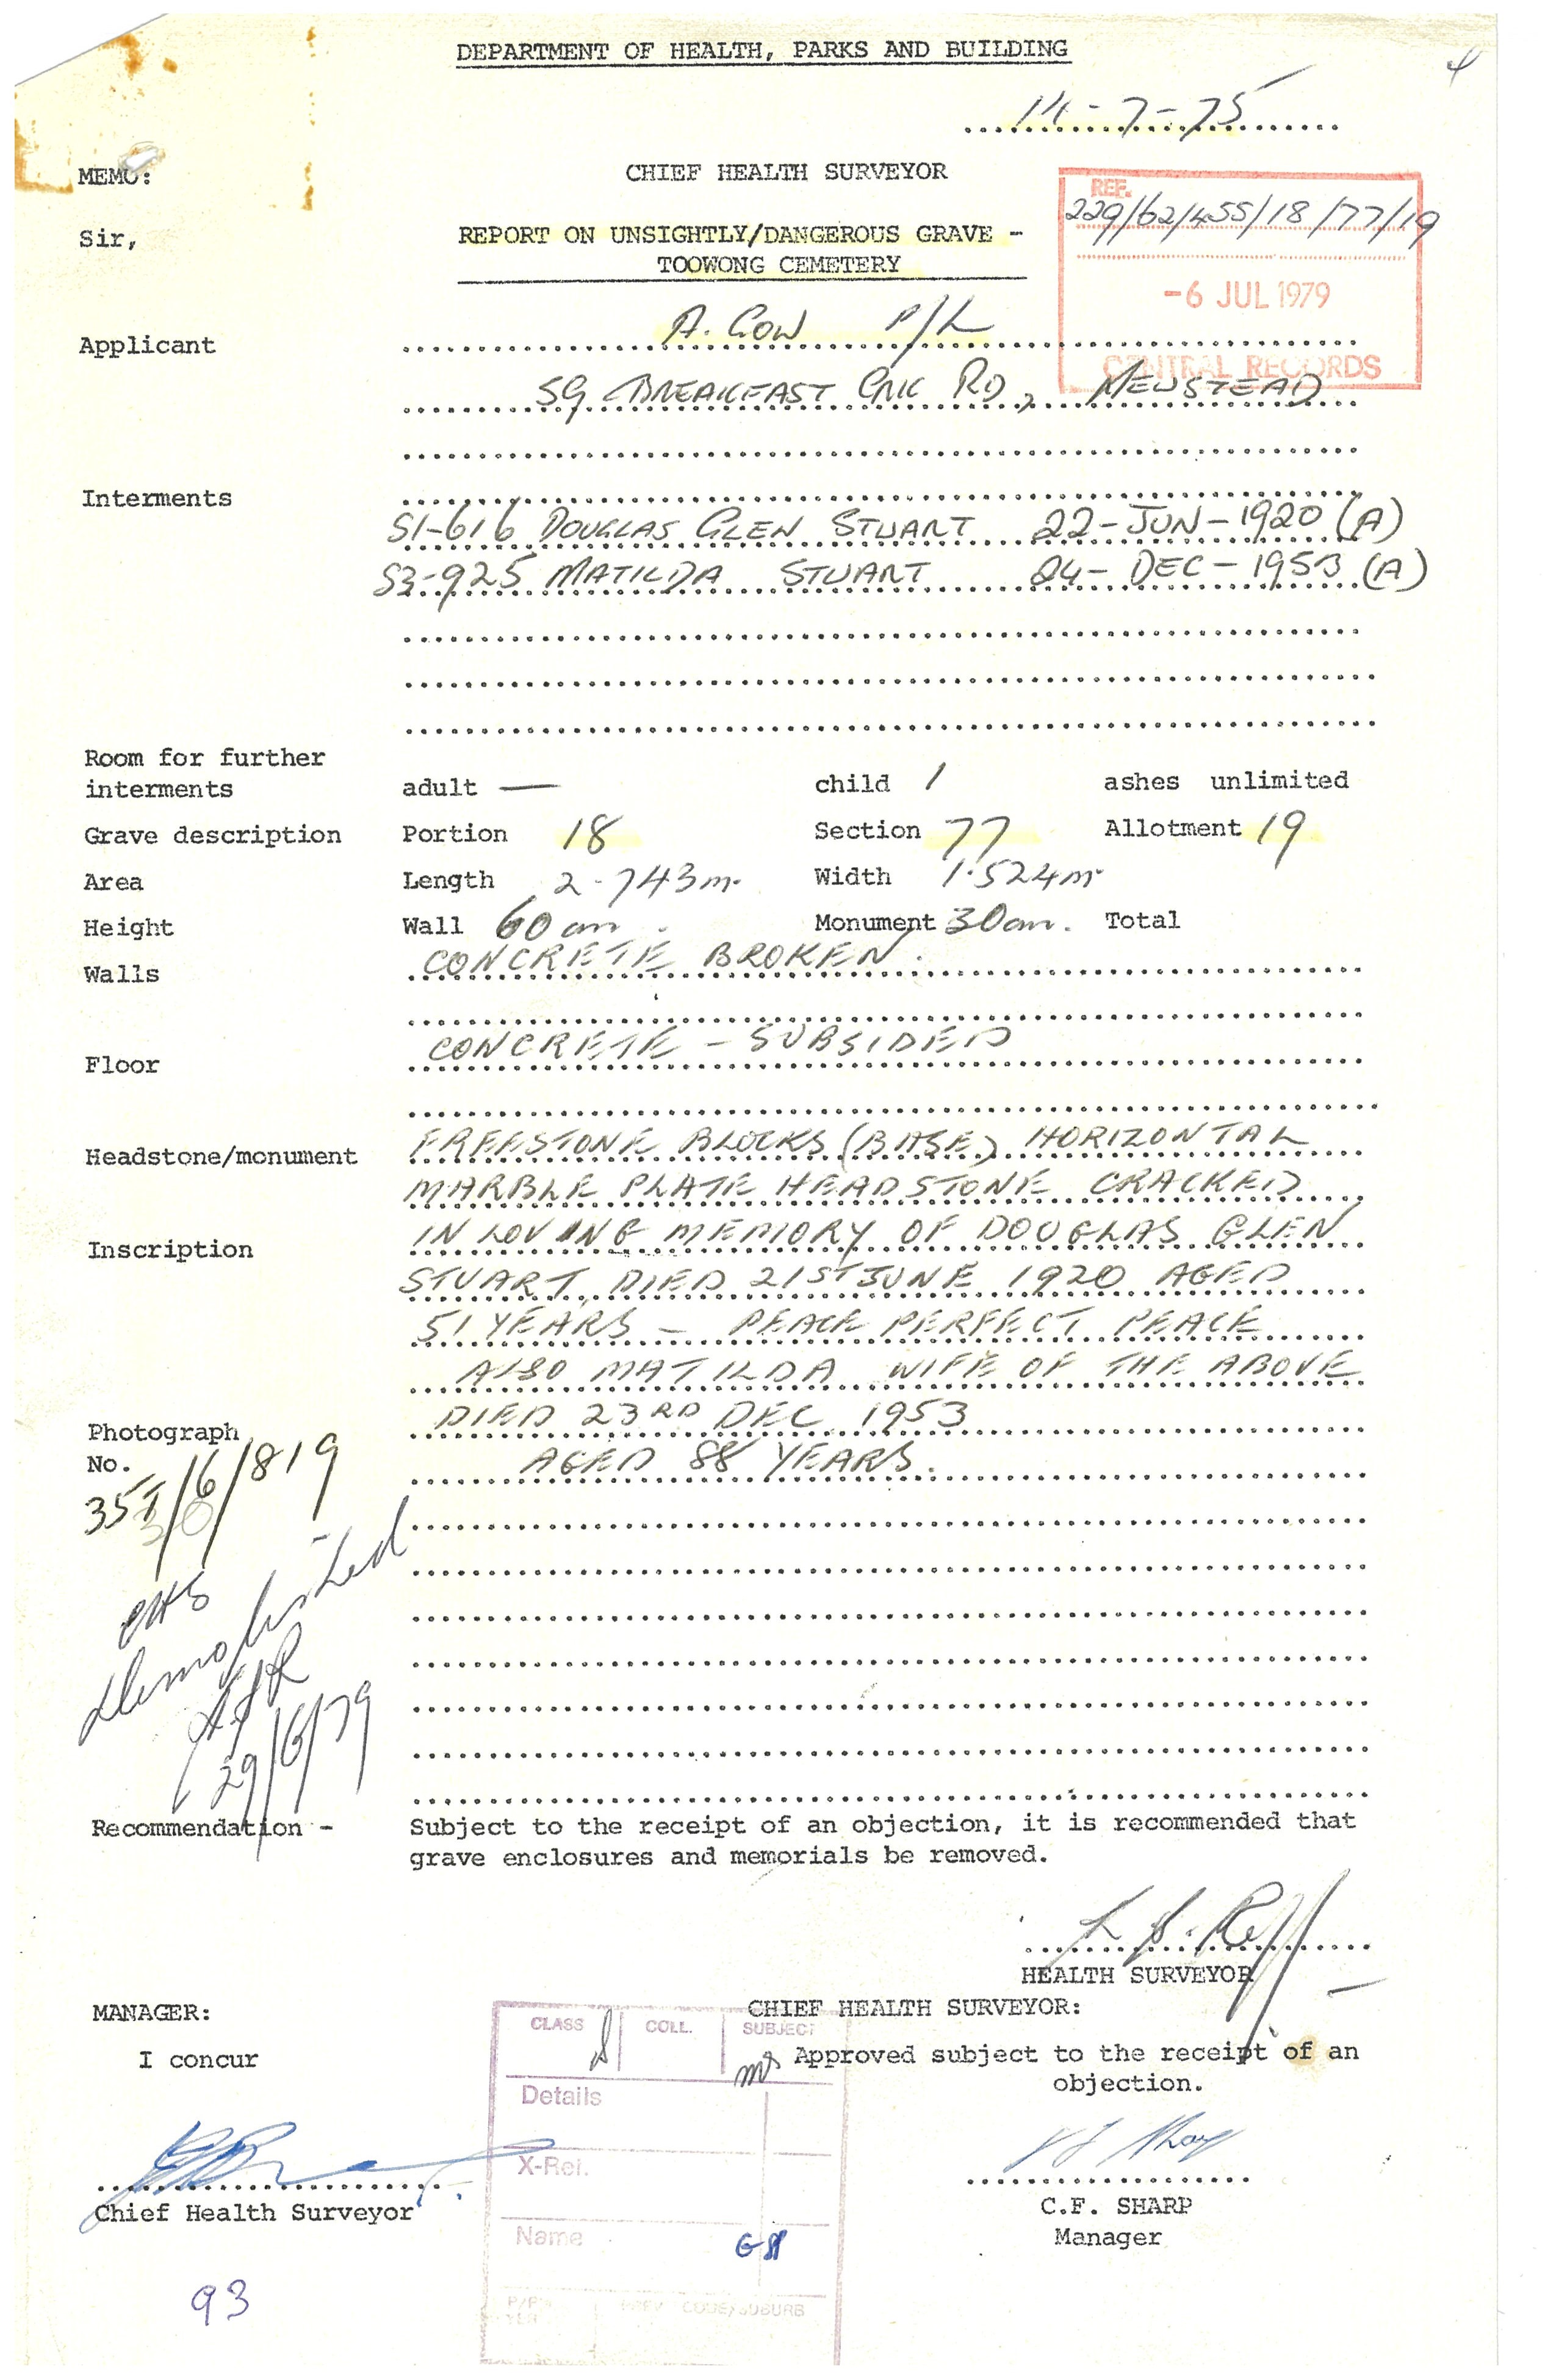 DEPARTMENT OF HEALTH, PARKS AND BUILDING
4
14-7-75
MEMO:
CHIEF HEALTH SURVEYOR
REF.
229/62/455/18/77/19
Sir,
REPORT ON UNSIGHTLY/DANGEROUS GRAVE -
TOOWONG CEMETERY
-6 JUL 1979
CENTRAL RECORDS
Applicant
A. GOW P/L
59 BREAKFAST CRK RD, NEWSTEAD
Interments
S1-616 DOUGLAS GLEN STUART 22-JUN-1920 (A)
S3-925 MATILDA STUART 24-DEC-1953 (A)
Room for further
interments adult — child 1 ashes unlimited
Grave description Portion 18 Section 77 Allotment 19
Area Length 2.743m. Width 1.524m
Height Wall 60 cm. Monument 30cm. Total
Walls CONCRETE BROKEN.
Floor CONCRETE - SUBSIDED
Headstone/monument FREESTONE BLOCKS (BASE) HORIZONTAL
MARBLE PLATE HEADSTONE CRACKED
Inscription IN LOVING MEMORY OF DOUGLAS GLEN
STUART DIED 21ST JUNE 1920 AGED
51 YEARS - PEACE PERFECT PEACE
ALSO MATILDA WIFE OF THE ABOVE
Photograph DIED 23RD DEC 1953
No. AGED 88 YEARS.
CHS
Demolished
29/6/79
Recommendation - Subject to the receipt of an objection, it is recommended that
grave enclosures and memorials be removed.
HEALTH SURVEYOR
MANAGER:
CHIEF HEALTH SURVEYOR:
CLASS COLL. SUBJECT
I concur
Approved subject to the receipt of an
objection.
Details
X-Ref.
Chief Health Surveyor
C.F. SHARP
Manager
Name
93